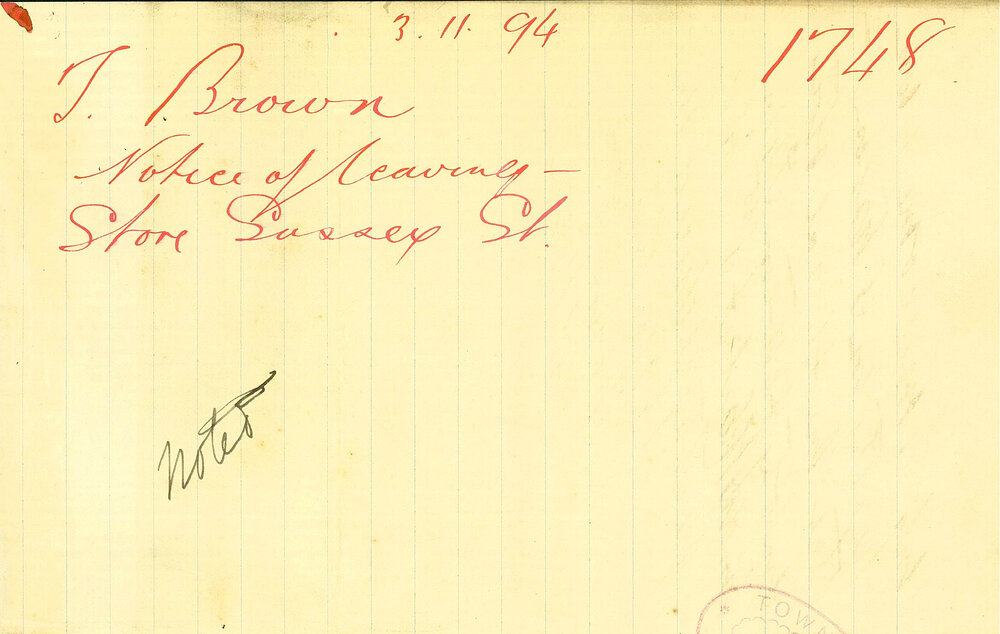 3.11.94
1748
T. Brown
Notice of leaving -
Store Sussex St.
Noted
TOWN